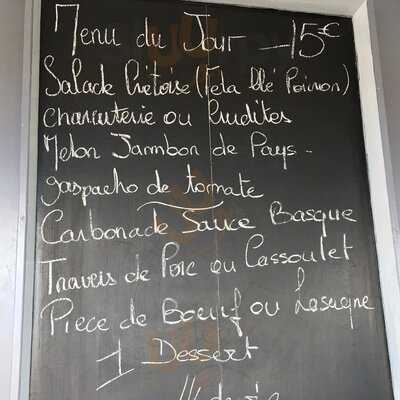 Menu du Jour - 15€
Salade Crétoise (Feta blé Poivron)
charcuterie ou Crudites
Melon Jambon de Pays -
gaspacho de tomate
Carbonade Sauce Basque
Travers de Porc ou Cassoulet
Piece de Boeuf ou Lasagne
1 Dessert